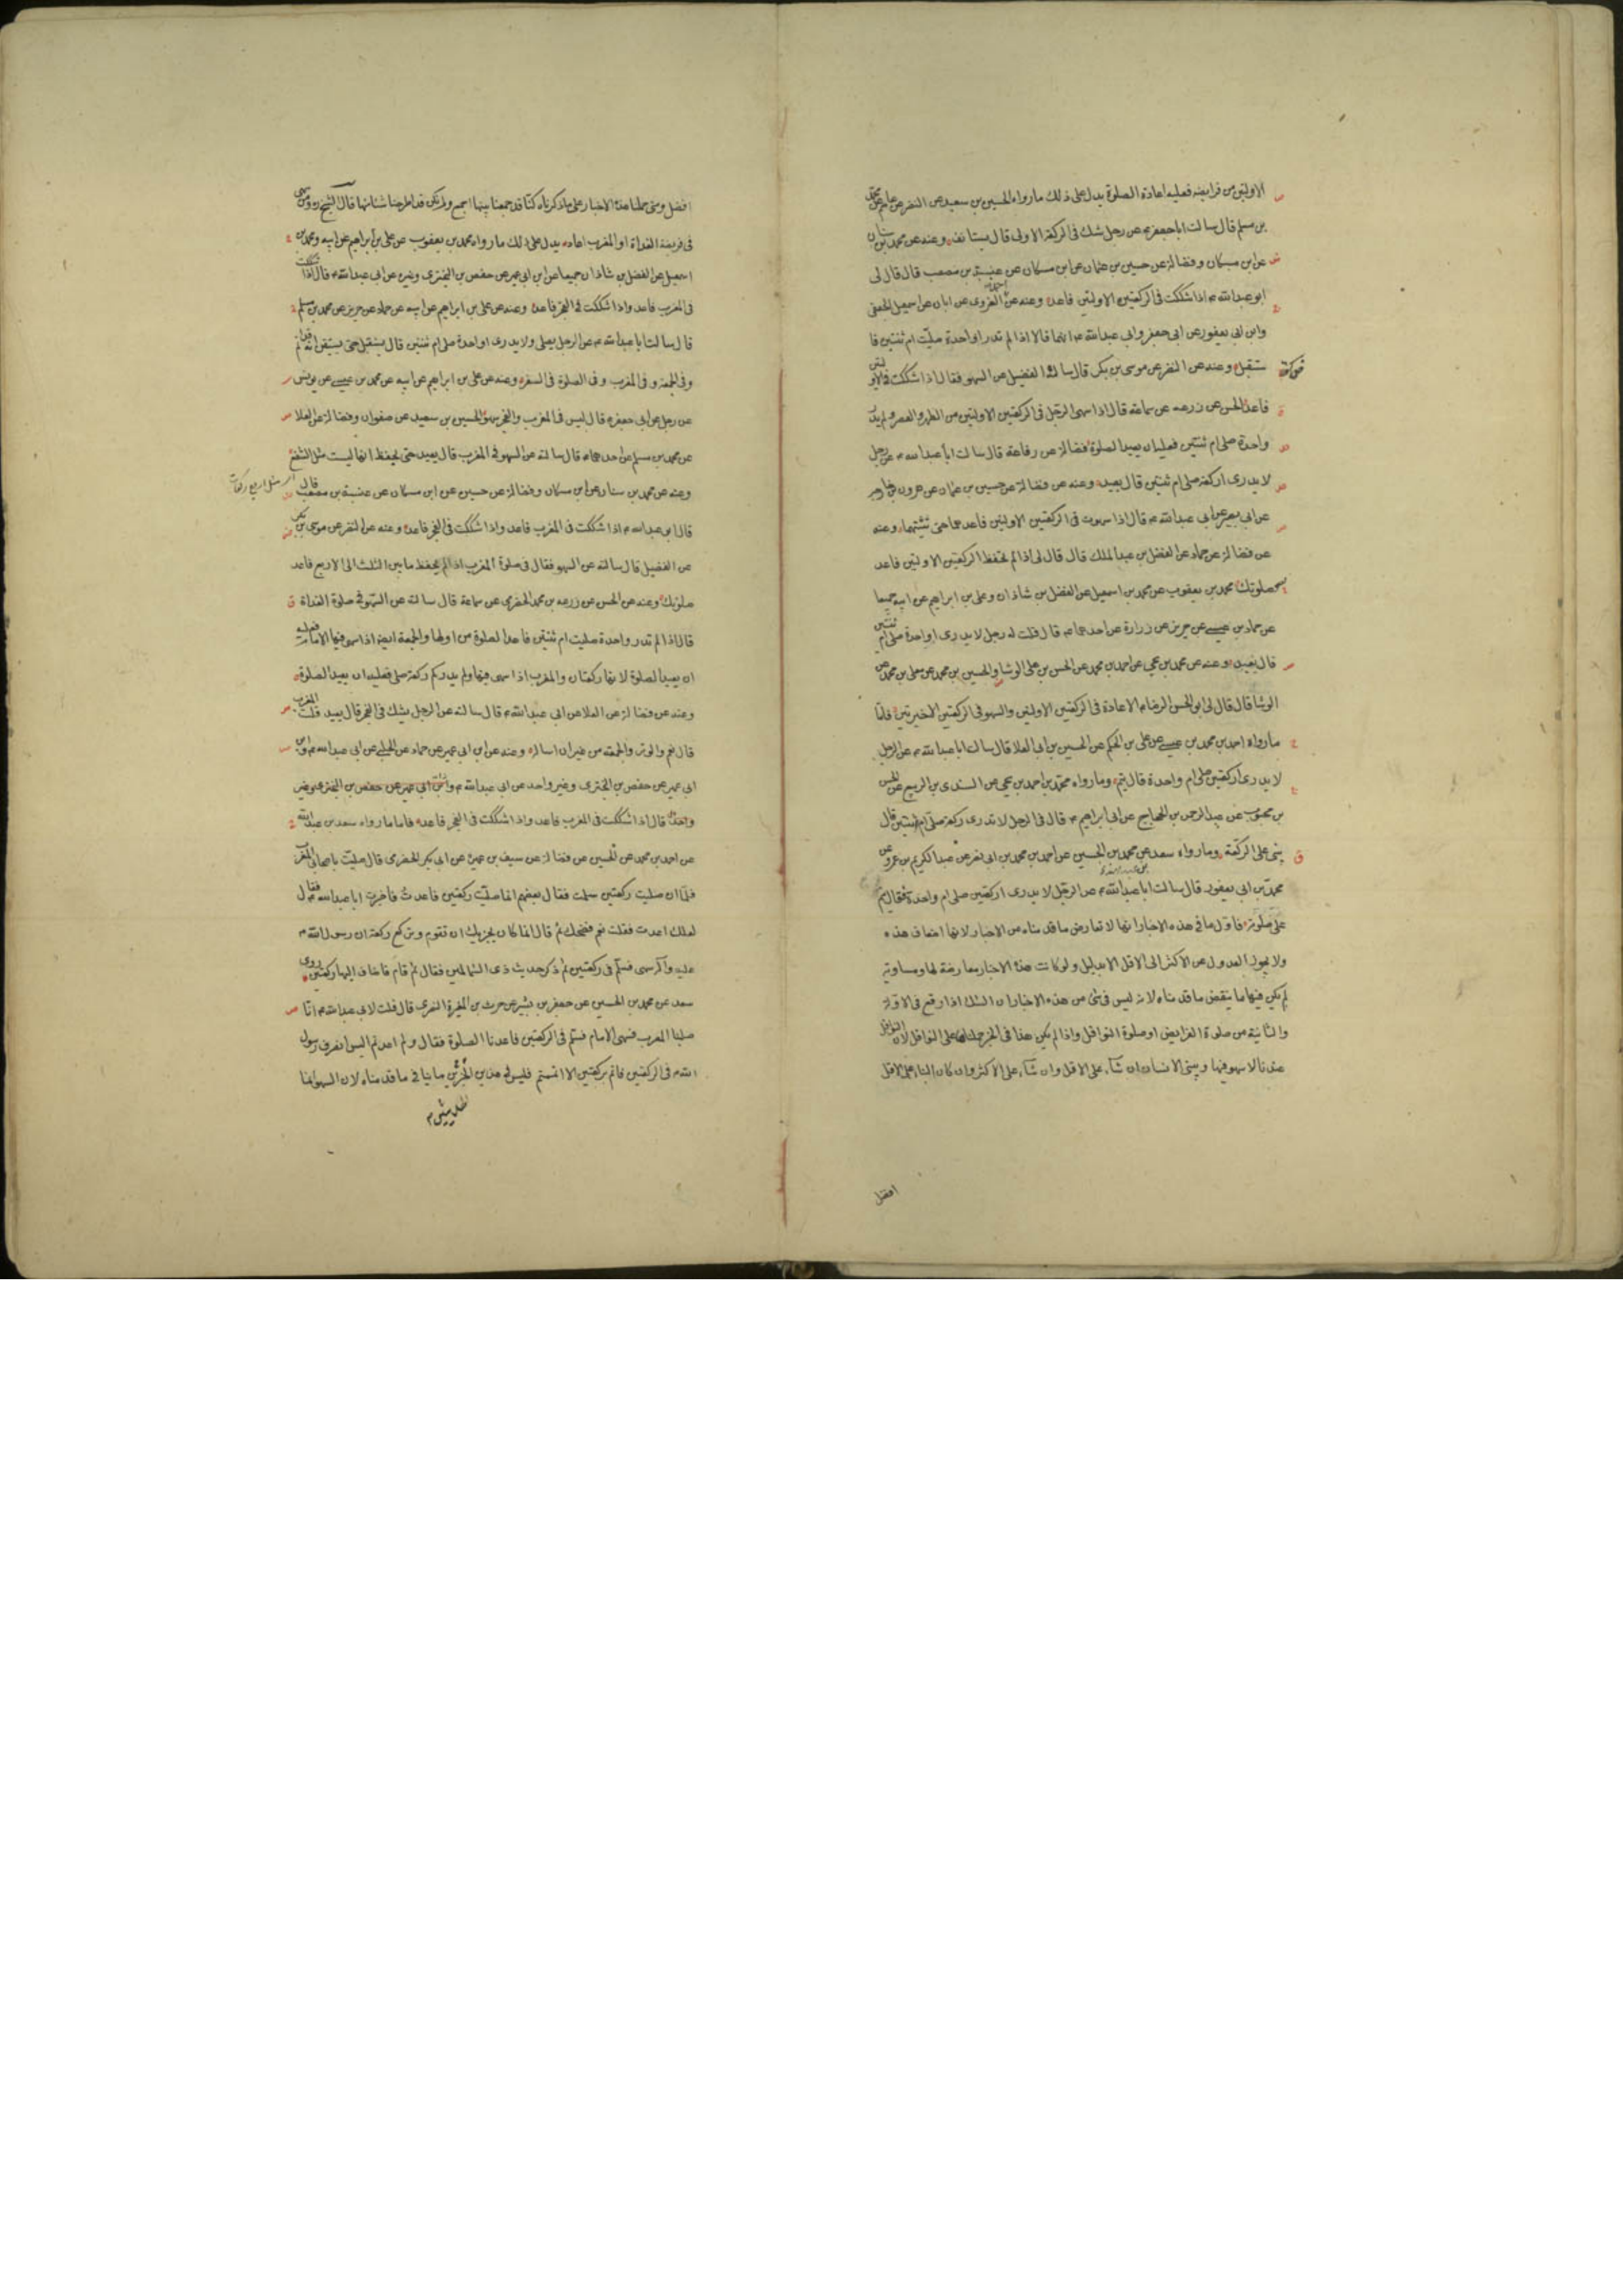 الاولتين من فرايضه فعليه اعادة الصلوة يدل على ذلك ما رواه الحسين بن سعيد عن النضر عن عاصم عن محمد
بن مسلم قال سالت ابا جعفر ع عن رجل شك فى الركعة الاولى قال يستانف وعنه عن محمد بن سنان
عن ابن مسكان وفضالة عن حسين بن عثمان عن ابن مسكان عن عنبسة بن مصعب قال قال لى
ابو عبد الله ع اذا شككت فى الركعتين الاولتين فاعد وعنه عن القروى عن ابان عن اسمعيل الجعفى
وابن ابى يعفور عن ابى جعفر وابى عبد الله ع انهما قالا اذا لم تدر اواحدة صليت ام ثنتين فا
ستقبل وعنه عن النضر عن موسى بن بكر قال ساله الفضيل عن السهو فقال اذا شككت فى الاولتين
فاعد الحسن عن زرعه عن سماعة قال اذا سهى الرجل فى الركعتين الاولتين من الظهر والعصر ولم يدر
واحدة صلى ام ثنتين فعليه ان يعيد الصلوة فضالة عن رفاعة قال سالت ابا عبد الله ع عن رجل
لا يدرى اركعة صلى ام ثنتين قال يعيد وعنه عن فضالة عن حسين بن عثمان عن هرون بن خارجه
عن ابى بصير عن ابى عبد الله ع قال اذا سهوت فى الركعتين الاولتين فاعدهما حتى تثبتهما وعنه
عن فضالة عن حماد عن الفضل بن عبد الملك قال قال لى اذا لم تحفظ الركعتين الاولتين فاعد
صلوتك محمد بن يعقوب عن محمد بن اسمعيل عن الفضل بن شاذان وعلى بن ابراهيم عن ابيه جميعا
عن حماد بن عيسى عن حريز عن زرارة عن احدهما ع قال قلت له رجل لا يدرى اواحدة صلى ام ثنتين
قال يعيد وعنه عن محمد بن يحيى عن احمد بن محمد عن الحسن بن على الوشا والحسين بن محمد عن معلى بن محمد عن
الوشا قال قال لى ابو الحسن الرضا ع الاعادة فى الركعتين الاولتين والسهو فى الركعتين الاخيرتين فاما
ما رواه احمد بن محمد بن عيسى عن على بن الحكم عن الحسين بن ابى العلا قال سالت ابا عبد الله ع عن الرجل
لا يدرى اركعتين صلى ام واحدة قال يتم وما رواه محمد بن احمد بن يحيى عن السندى بن الربيع عن الحسن
بن محبوب عن عبد الرحمن بن الحجاج عن ابى ابراهيم ع قال فى الرجل لا يدرى ركعة صلى ام ثنتين قال
يبنى على الركعة وما رواه سعد عن محمد بن الحسين عن احمد بن محمد بن ابى نصر عن عبد الكريم بن عمرو عن
محمد بن ابى يعفور قال سالت ابا عبد الله ع عن الرجل لا يدرى اركعتين صلى ام واحدة فقال يتم
على صلوته فاول ما فى هذه الاخبار انها لا تعارض ما قدمناه من الاخبار لانها اضعاف هذه
ولا يجوز العدول عن الاكثر الى الاقل الا بدليل ولو كانت هذه الاخبار معارضة لها ومساوية
لم يكن فيها ما ينقض ما قدمناه لانه ليس فى شئ من هذه الاخبار ان الشك اذا وقع فى الاولة
والثانية من صلوة الفرايض او صلوة النوافل واذا لم يكن هذا فى الخبر حملناها على النوافل لان النوافل
عندنا لا سهو فيها ويبنى الانسان ان شاء على الاقل وان شاء على الاكثر وان كان البناء على الاقل
افضل
افضل ومتى حملنا هذه الاخبار على ما ذكرناه كنا قد جمعنا بينها اجمع ولم نكن قد اطرحنا شئا منها قال الشيخ ره ومن سهى
فى فريضة الغداة او المغرب اعاد يدل على ذلك ما رواه محمد بن يعقوب عن على بن ابراهيم عن ابيه ومحمد بن
اسمعيل عن الفضل بن شاذان جميعا عن ابن ابى عمير عن حفص بن البخترى وغيره عن ابى عبد الله ع قال اذا شككت
فى المغرب فاعد واذا شككت فى الفجر فاعد وعنه عن على بن ابراهيم عن ابيه عن حماد عن حريز عن محمد بن مسلم
قال سالت ابا عبد الله ع عن الرجل يصلى ولا يدرى اواحدة صلى ام ثنتين قال يستقبل حتى يستيقن انه قد اتم
وفى الجمعة وفى المغرب وفى الصلوة فى السفر وعنه عن على بن ابراهيم عن ابيه عن محمد بن عيسى عن يونس
عن رجل عن ابى جعفر ع قال ليس فى المغرب والفجر سهو الحسين بن سعيد عن صفوان وفضالة عن العلا
عن محمد بن مسلم عن احدهما ع قال سالته عن السهو فى المغرب قال يعيد حتى يحفظ انها ليست مثل الشفع
وعنه عن محمد بن سنان عن ابن مسكان وفضالة عن حسين عن ابن مسكان عن عنبسة بن مصعب قال
قال ابو عبد الله ع اذا شككت فى المغرب فاعد واذا شككت فى الفجر فاعد وعنه عن النضر عن موسى بن بكر
عن الفضيل قال سالته عن السهو فقال فى صلوة المغرب اذا لم يحفظ ما بين الثلث الى الاربع فاعد
صلوتك وعنه عن الحسن عن زرعه بن محمد الحضرمى عن سماعة قال سالته عن السهو فى صلوة الغداة
قال اذا لم تدر واحدة صليت ام ثنتين فاعد الصلوة من اولها والجمعة ايضا اذا سهى فيها الامام فعليه
ان يعيد الصلوة لانها ركعتان والمغرب اذا سهى فيها ولم يدر كم ركعة صلى فعليه ان يعيد الصلوة
وعنه عن فضالة عن العلا عن ابى عبد الله ع قال سالته عن الرجل يشك فى الفجر قال يعيد قلت المغرب
قال نعم والوتر والجمعة من غير ان اساله وعنه عن ابن ابى عمير عن حماد عن الحلبى عن ابى عبد الله ع وابن
ابى عمير عن حفص بن البخترى وغير واحد عن ابى عبد الله ع وابن ابى عمير عن حفص بن البخترى وغير
واحد قال اذا شككت فى المغرب فاعد واذا شككت فى الفجر فاعد فاما ما رواه سعد بن عبد الله
عن احمد بن محمد عن الحسين عن فضالة عن سيف بن عميرة عن ابى بكر الحضرمى قال صليت باصحابى المغرب
فلما ان صليت ركعتين سلمت فقال بعضهم انما صليت ركعتين فاعدت فاخبرت ابا عبد الله ع فقال
لعلك اعدت فقلت نعم فضحك ثم قال انما كان يجزيك ان تقوم وتركع ركعة ان رسول الله ص
عليه وآله سهى فسلم فى ركعتين ثم ذكر حديث ذى الشمالين فقال ثم قام فاضاف اليها ركعتين روى
سعد عن محمد بن الحسين عن جعفر بن بشير عن حرث بن المغيرة النضرى قال قلت لابى عبد الله ع انا
صلينا المغرب فسهى الامام فسلم فى الركعتين فاعدنا الصلوة فقال ولم اعدتم اليس انصرف رسول
الله ص فى الركعتين فاتم بركعتين الا اتممتم فليس فى هذين الخبرين ما ينافى ما قدمناه لان السهو انما